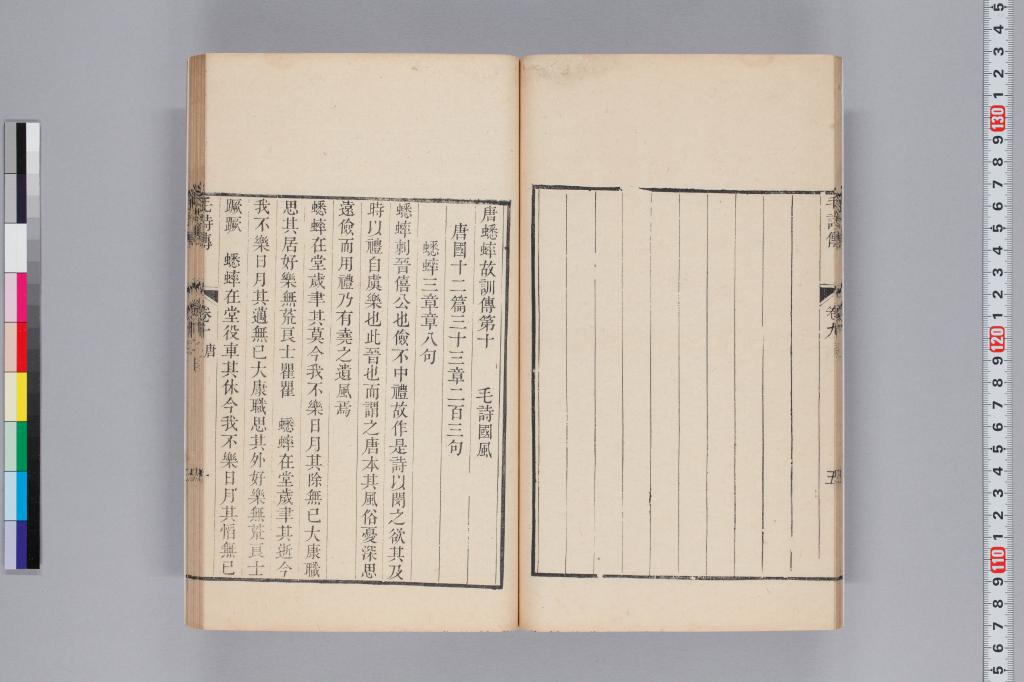 毛詩傳 卷九 五
唐蟋蟀故訓傳第十 毛詩國風
唐國十二篇三十三章二百三句
蟋蟀三章章八句
蟋蟀刺晉僖公也儉不中禮故作是詩以閔之欲其及
時以禮自虞樂也此晉也而謂之唐本其風俗憂深思
遠儉而用禮乃有堯之遺風焉
蟋蟀在堂歲聿其莫今我不樂日月其除無已大康職
思其居好樂無荒良士瞿瞿 蟋蟀在堂歲聿其逝今
我不樂日月其邁無已大康職思其外好樂無荒良士
蹶蹶 蟋蟀在堂役車其休今我不樂日月其慆無已
毛詩傳 卷十 唐 一
5 4 3 2 1 130 9 8 7 6 5 4 3 2 1 120 9 8 7 6 5 4 3 2 1 110 9 8 7 6 5